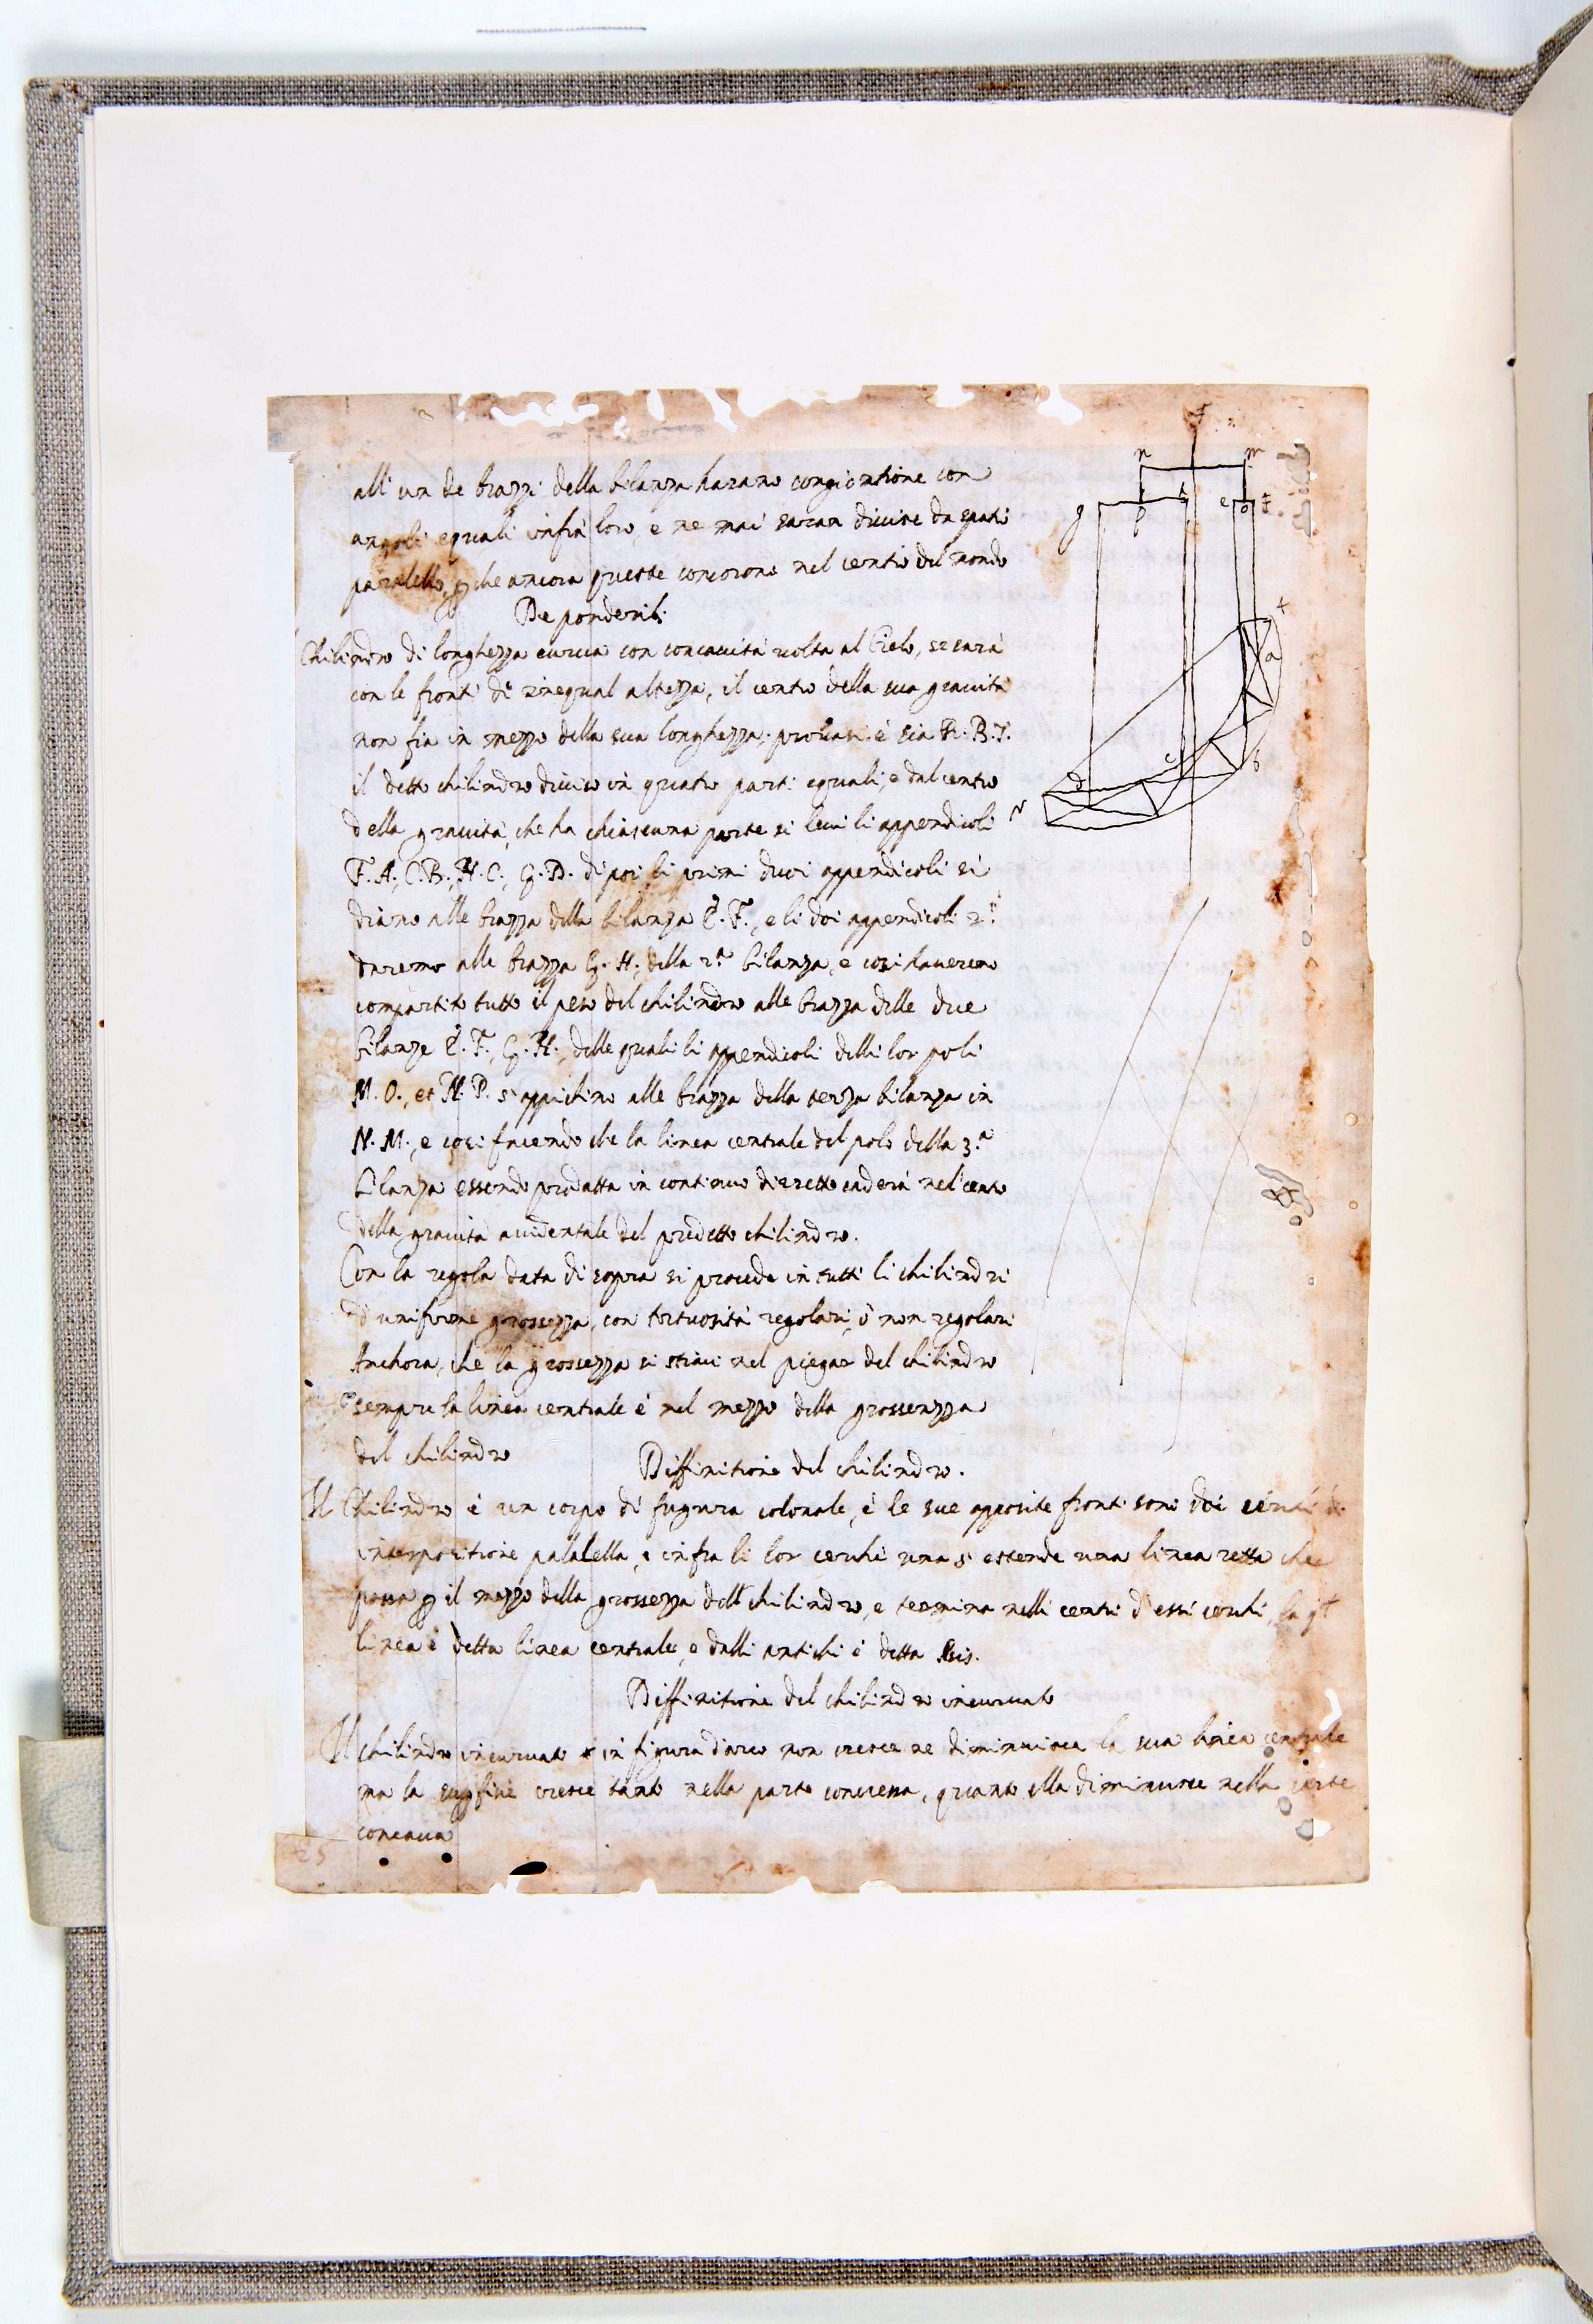 all' un de brazzi della bilanza harano congiontione con
angoli equali infra loro, e ne mai saran divise da spatii
paralello, p che ancora queste concorono nel centro del mondo
De ponderib.
Chilindro di longhezza curva con concavità volta al Cielo, se sarà
con le fronti di inequal altezza, il centro della sua gravità
non fia in mezzo della sua longhezza; provasi è sia R. B. T.
il detto chilindro diviso in quatro parti equali, e dal centro
della gravità, che ha chiascuna parte si levi li appendicoli
F. A., C. B., H. C., G. D. di poi li primi duoi appendicoli si
diano alle brazza della bilanza E. F., e li doi appendicoli 2.i
daremo alle brazza G. H., della 2.a bilanza, e cosi haveremo
compartito tutto il peso del chilindro alle brazza delle due
bilanze E. F., G. H., delle quali li appendicoli delli lor poli
M. O., et N. P. s'appichino alle brazza della terza bilanza in
N. M., e cosi facendo che la linea centrale del polo della 3.a
bilanza essendo produtta in continuo diretto caderà nel centro
della gravità accidentale del predetto chilindro.
Con la regola data di sopra si procede in tutti li chilindri
d'uniforme grossezza, con tortuosità regolari, ò non regolari
Anchora, che la grossezza si strinci nel piegar del chilindro
sempre la linea centrale è nel mezzo della grossezza
del chilindro
Diffinitione del chilindro.
Il Chilindro è un corpo di fugura colonale, è le sue opposite fronti sono doi
interpositione palalella, e infra li lor cerchi una si estende una linea retta che
passa p il mezzo della grossezza dell chilindro, e termina nelli centri d'essi cerchi, la
linea è detta linea centrale, e dalli antichi è detta
Diffinitione del chilindro incurvato
Il chilindro incurvato in figura d'arco non cresce ne diminuisce la sua linea centrale
ma la cresce tanto nella parte convessa, quanto ella diminuisce nella parte
concava
n m
g h e o f
p
a
b
c
d
25